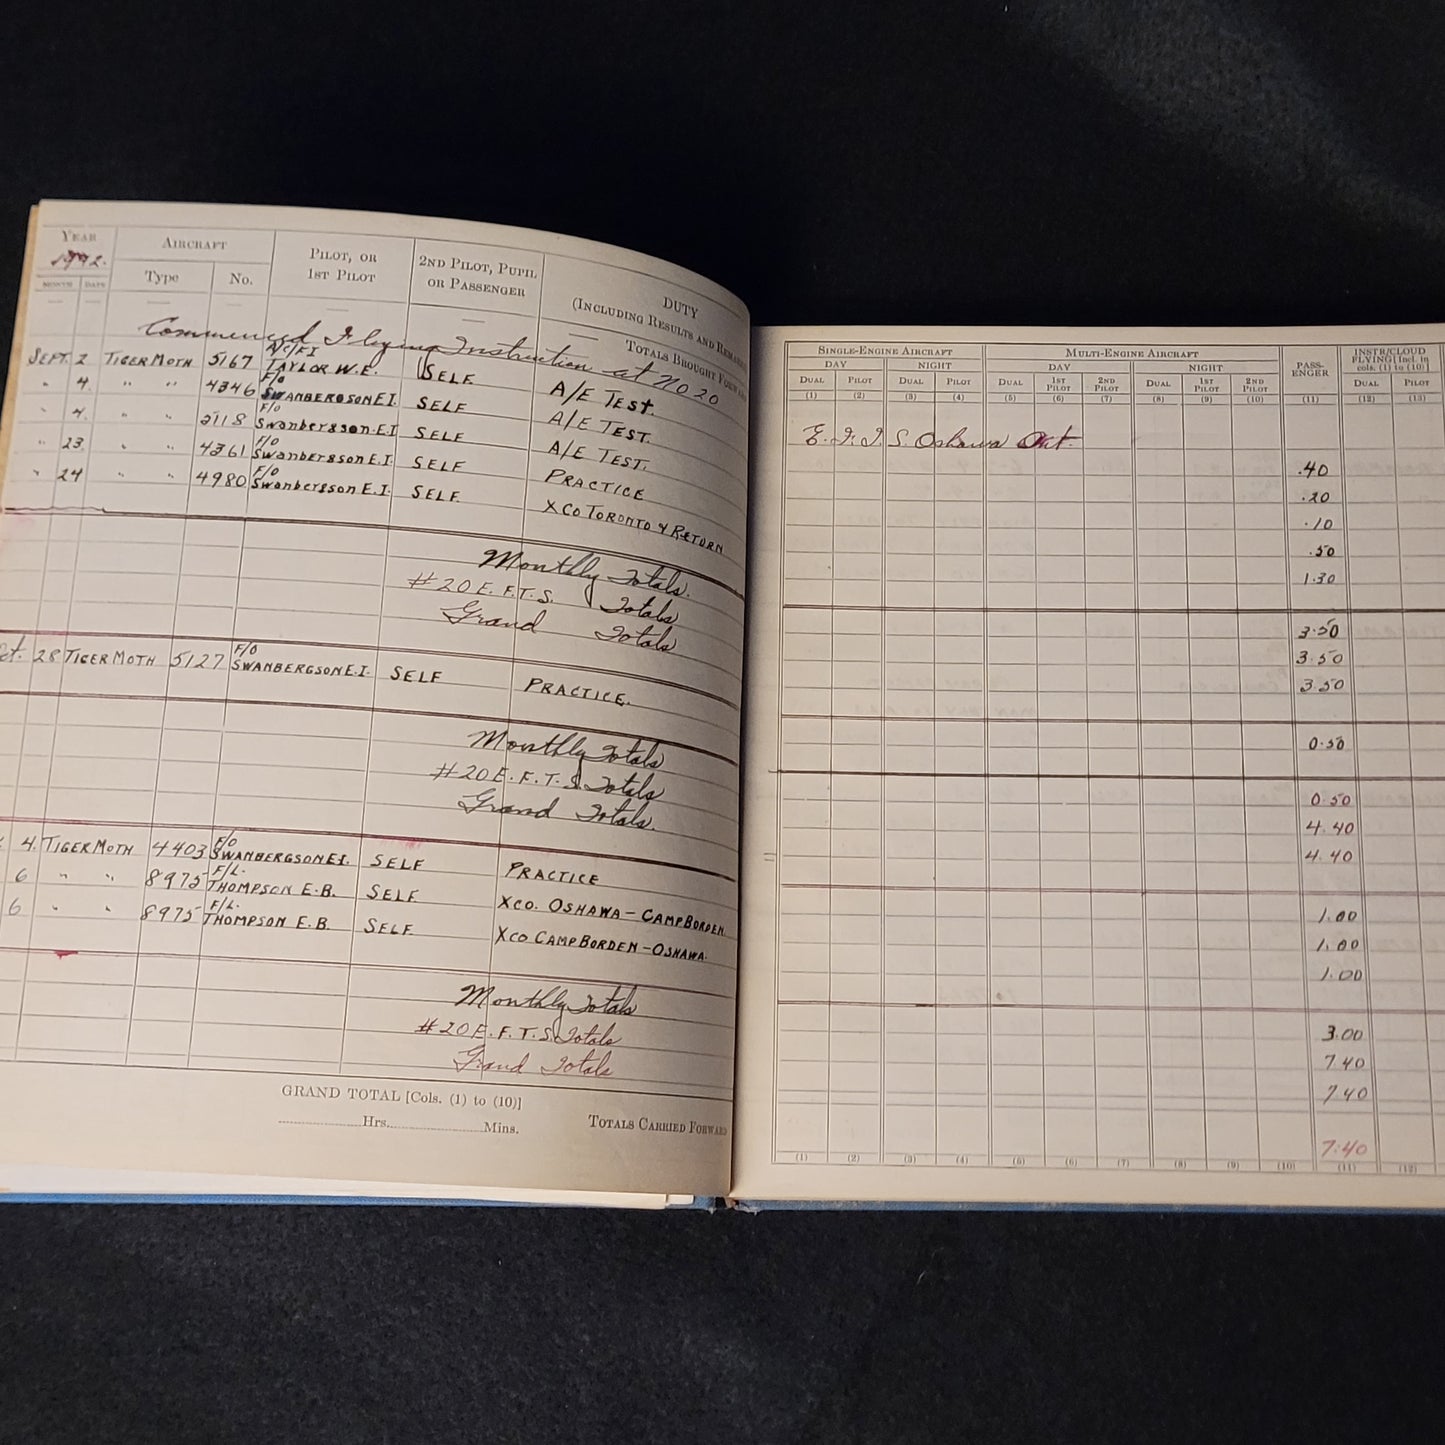 YEAR AIRCRAFT PILOT, OR 1ST PILOT 2ND PILOT, PUPIL OR PASSENGER DUTY (INCLUDING RESULTS AND
1942. Type No.
MONTH DATE
TOTALS BROUGHT
Commenced Flying Instruction at No 20
E. F. T. S. Oshawa Ont.
SEPT. 2 TIGER MOTH 5167 TAYLOR W.E. SELF A/E TEST. .40
" 4. " " 4346 F/O SWANBERGSON E.I. SELF A/E TEST. .20
" 4. " " F/O Swanbergson E.I SELF A/E TEST. .10
" 23. " " 4361 F/O Swanbergson E.I. SELF PRACTICE .50
" 24 " " 4980 F/O Swanbergson E.I. SELF X CO TORONTO & RETURN 1.30
Monthly Totals. 3.50
#20 E. F.T.S. Totals 3.50
Grand Totals 3.50
28 TIGER MOTH 5127 F/O SWANBERGSON E.I. SELF PRACTICE. 0.50
Monthly Totals 0.50
#20 E. F. T. S. Totals 4.40
Grand Totals. 4.40
4. TIGER MOTH 4403 F/O SWANBERGSON E.I. SELF PRACTICE 1.00
6 " " 8975 F/L. THOMPSON E.B. SELF XCO. OSHAWA – CAMP BORDEN. 1.00
6 " " 8975 F/L. THOMPSON E.B. SELF XCO CAMP BORDEN – OSHAWA. 1.00
Monthly Totals 3.00
#20 E. F. T. S. Totals 7.40
Grand Totals 7.40
GRAND TOTAL [Cols. (1) to (10)]
Hrs. Mins.
TOTALS CARRIED FORWARD 7:40
SINGLE-ENGINE AIRCRAFT MULTI-ENGINE AIRCRAFT PASS-ENGER INSTR/CLOUD FLYING [Incl. in cols. (1) to (10)]
DAY NIGHT DAY NIGHT
DUAL PILOT DUAL PILOT DUAL 1ST PILOT 2ND PILOT DUAL 1ST PILOT 2ND PILOT DUAL PILOT
(1) (2) (3) (4) (5) (6) (7) (8) (9) (10) (11) (12) (13)
(1) (2) (3) (4) (5) (6) (7) (8) (9) (10) (11) (12)